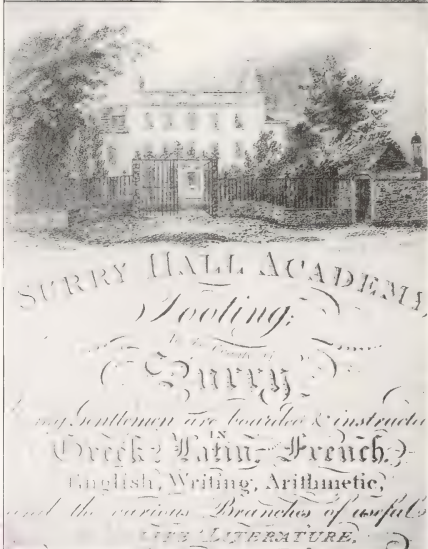 SURRY HALL ACADEMY,
Tooting;
In the County of
Surry
Gentlemen are boarded & instructe
IN
Greek, Latin, French,
English, Writing, Arithmetic,
and the various Branches of useful
LITERATURE.